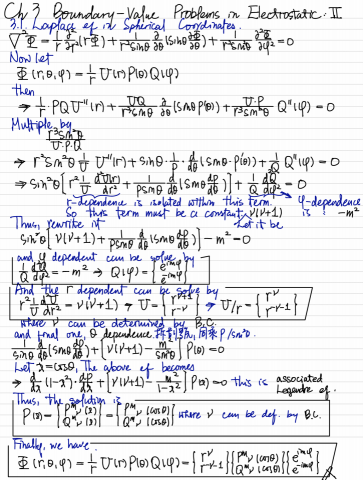 Ch 3 Boundary-Value Problems in Electrostatic: II
3.1. Laplace Eq. in Spherical Coordinates.
∇²Φ = 1/r ∂²/∂r² (rΦ) + 1/(r²sinθ) ∂/∂θ (sinθ ∂Φ/∂θ) + 1/(r²sin²θ) ∂²Φ/∂φ² = 0
Now let
Φ(r,θ,φ) = 1/r U(r) P(θ) Q(φ)
then
⇒ 1/r PQ U''(r) + UQ/(r³sinθ) ∂/∂θ (sinθ P'(θ)) + U·P/(r³sin²θ) Q''(φ) = 0
Multiple by
r³sin²θ/(U·P·Q)
⇒ r²sin²θ 1/U U''(r) + sinθ · 1/P · d/dθ (sinθ · P'(θ)) + 1/Q Q''(φ) = 0
⇒ sin²θ [r² 1/U d²U(r)/dr² + 1/(P sinθ) d/dθ (sinθ dP/dθ)] + 1/Q d²Q/dφ² = 0
r-dependence is isolated within this term. φ-dependence
So this term must be a constant, ν(ν+1) is : -m²
Thus, rewrite it Let it be
sin²θ [ν(ν+1) + 1/(P sinθ) d/dθ (sinθ dP/dθ)] - m² = 0
and φ dependent can be solve by
1/Q d²Q/dφ² = -m² → Q(φ) = { e^{imφ} e^{-imφ}
And the r dependent can be solve by
r² 1/U d²U/dr² = ν(ν+1) → U = { r^{ν+1} r^{-ν} → U/r = { r^ν r^{-ν-1}
where ν can be determined by B.C.
and final one, θ dependence, P/sin²θ.
1/sinθ d/dθ (sinθ dP/dθ) + [ν(ν+1) - m²/sin²θ] P(θ) = 0
Let x = cosθ, The above eq becomes
⇒ d/dx (1-x²) dP/dx + [ν(ν+1) - m²/(1-x²)] P(x) = 0 this is associated
Legendre eq.
Thus, the solution is
P(x) = { P^m_ν(x) Q^m_ν(x) = { P^m_ν(cosθ) Q^m_ν(cosθ) where ν can be def. by B.C.
Finally, we have
Φ(r,θ,φ) = 1/r U(r) P(θ) Q(φ) = { r^ν r^{-ν-1} } { P^m_ν(cosθ) Q^m_ν(cosθ) } { e^{imφ} e^{-imφ} }